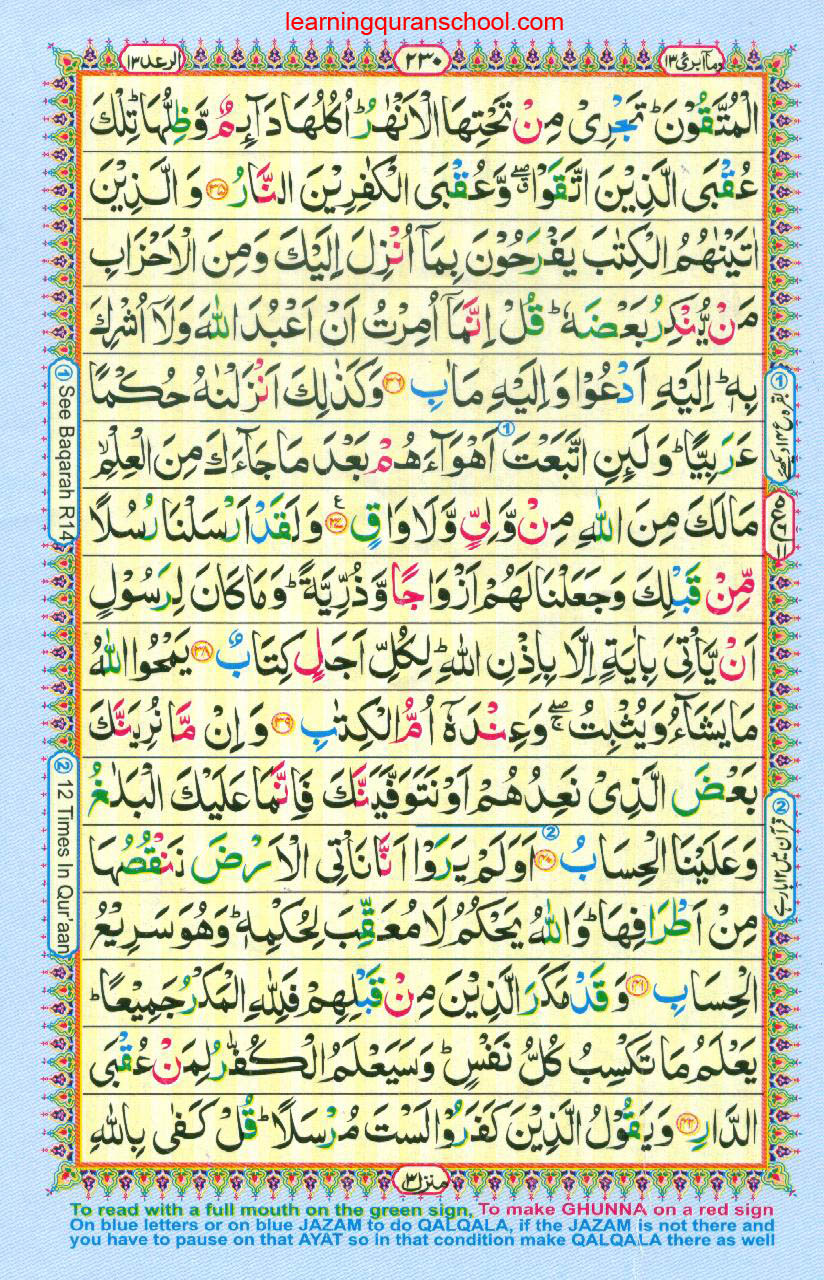 learningquranschool.com
الرعد ١٣
٢٣٠
ومآ ابرئ ١٣
الْمُتَّقُوْنَ ؕ تَجْرِیْ مِنْ تَحْتِهَا الْاَنْهٰرُ ؕ اُكُلُهَا دَآىِٕمٌ وَّظِلُّهَا ؕ تِلْكَ
عُقْبَی الَّذِیْنَ اتَّقَوْا ۖۗ وَّعُقْبَی الْكٰفِرِیْنَ النَّارُ ۝۳۵ وَ الَّذِیْنَ
اٰتَیْنٰهُمُ الْكِتٰبَ یَفْرَحُوْنَ بِمَاۤ اُنْزِلَ اِلَیْكَ وَ مِنَ الْاَحْزَابِ
مَنْ یُّنْكِرُ بَعْضَهٗ ؕ قُلْ اِنَّمَاۤ اُمِرْتُ اَنْ اَعْبُدَ اللّٰهَ وَلَاۤ اُشْرِكَ
بِهٖ ؕ اِلَیْهِ اَدْعُوْا وَ اِلَیْهِ مَاٰبِ ۝۳۶ وَكَذٰلِكَ اَنْزَلْنٰهُ حُكْمًا
عَرَبِیًّا ؕ وَلَىِٕنِ اتَّبَعْتَ ① اَهْوَآءَهُمْ بَعْدَ مَا جَآءَكَ مِنَ الْعِلْمِ ۙ
مَا لَكَ مِنَ اللّٰهِ مِنْ وَّلِیٍّ وَّلَا وَاقٍ ۝۳۷ ع وَلَقَدْ اَرْسَلْنَا رُسُلًا
مِّنْ قَبْلِكَ وَجَعَلْنَا لَهُمْ اَزْوَاجًا وَّذُرِّیَّةً ؕ وَمَا كَانَ لِرَسُوْلٍ
اَنْ یَّاْتِیَ بِاٰیَةٍ اِلَّا بِاِذْنِ اللّٰهِ ؕ لِكُلِّ اَجَلٍ كِتَابٌ ۝۳۸ یَمْحُوا اللّٰهُ
مَا یَشَآءُ وَیُثْبِتُ ۖۚ وَعِنْدَهٗۤ اُمُّ الْكِتٰبِ ۝۳۹ وَ اِنْ مَّا نُرِیَنَّكَ
بَعْضَ الَّذِیْ نَعِدُهُمْ اَوْ نَتَوَفَّیَنَّكَ فَاِنَّمَا عَلَیْكَ الْبَلٰغُ
وَعَلَیْنَا الْحِسَابُ ۝۴۰ ② اَوَلَمْ یَرَوْا اَنَّا نَاْتِی الْاَرْضَ نَنْقُصُهَا
مِنْ اَطْرَافِهَا ؕ وَاللّٰهُ یَحْكُمُ لَا مُعَقِّبَ لِحُكْمِهٖ ؕ وَهُوَ سَرِیْعُ
الْحِسَابِ ۝۴۱ وَقَدْ مَكَرَ الَّذِیْنَ مِنْ قَبْلِهِمْ فَلِلّٰهِ الْمَكْرُ جَمِیْعًا ؕ
یَعْلَمُ مَا تَكْسِبُ كُلُّ نَفْسٍ ؕ وَسَیَعْلَمُ الْكُفّٰرُ لِمَنْ عُقْبَی
الدَّارِ ۝۴۲ وَیَقُوْلُ الَّذِیْنَ كَفَرُوْا لَسْتَ مُرْسَلًا ؕ قُلْ كَفٰی بِاللّٰهِ
① See Baqarah R14
② 12 Times In Qur'aan
② قرآن میں ۱۲ بار ہے
منزل ٣
To read with a full mouth on the green sign, To make GHUNNA on a red sign
On blue letters or on blue JAZAM to do QALQALA, if the JAZAM is not there and
you have to pause on that AYAT so in that condition make QALQALA there as well